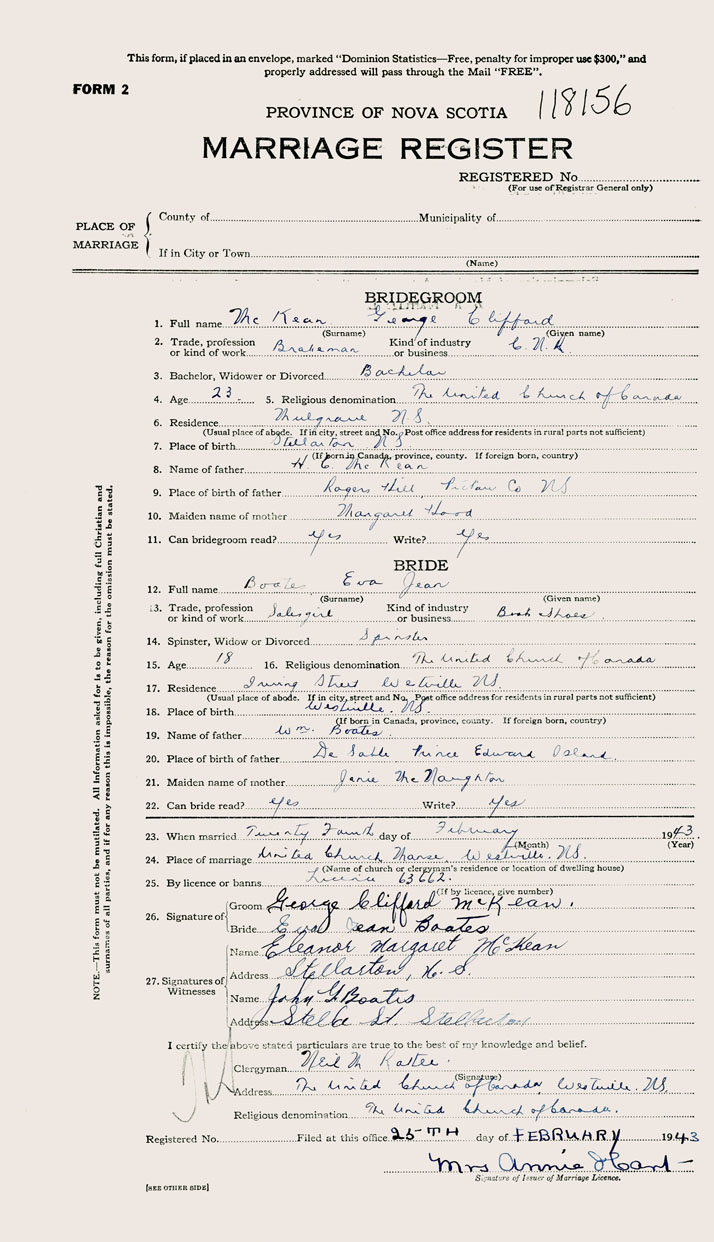 This form, if placed in an envelope, marked “Dominion Statistics—Free, penalty for improper use $300,” and
properly addressed will pass through the Mail “FREE”.
FORM 2
118156
PROVINCE OF NOVA SCOTIA
MARRIAGE REGISTER
REGISTERED No.
(For use of Registrar General only)
PLACE OF MARRIAGE
County of Municipality of
If in City or Town
(Name)
BRIDEGROOM
1. Full name Mc Kean George Clifford
(Surname) (Given name)
2. Trade, profession or kind of work Brakeman Kind of industry or business C.N.R.
3. Bachelor, Widower or Divorced Bachelor
4. Age 23 5. Religious denomination The United Church of Canada
6. Residence Mulgrave N.S.
(Usual place of abode. If in city, street and No. Post office address for residents in rural parts not sufficient)
7. Place of birth Stellarton N.S.
(If born in Canada, province, county. If foreign born, country)
8. Name of father H. C. Mc Kean
9. Place of birth of father Rogers Hill, Pictou Co NS
10. Maiden name of mother Margaret Hood
11. Can bridegroom read? Yes Write? Yes
BRIDE
12. Full name Boates Eva Jean
(Surname) (Given name)
13. Trade, profession or kind of work Salesgirl Kind of industry or business Shoes
14. Spinster, Widow or Divorced Spinster
15. Age 18 16. Religious denomination The United Church of Canada
17. Residence Irving Street Westville NS.
(Usual place of abode. If in city, street and No. Post office address for residents in rural parts not sufficient)
18. Place of birth Westville. NS.
(If born in Canada, province, county. If foreign born, country)
19. Name of father Wm. Boates.
20. Place of birth of father De Sable Prince Edward Island.
21. Maiden name of mother Janie Mc Naughton
22. Can bride read? Yes Write? Yes
23. When married Twenty Fourth day of February 1943
(Month) (Year)
24. Place of marriage United Church Manse, Westville. NS.
(Name of church or clergyman's residence or location of dwelling house)
25. By licence or banns Licence 63662.
(If by licence, give number)
26. Signature of
Groom George Clifford McKean.
Bride Eva Jean Boates
27. Signatures of Witnesses
Name Eleanor Margaret McKean
Address Stellarton, N.S.
Name John G Boates
Address St. Stellarton
I certify the above stated particulars are true to the best of my knowledge and belief.
Clergyman Neil M
(Signature)
Address The United Church of Canada, Westville. NS.
Religious denomination The United Church of Canada.
Registered No. Filed at this office 25TH day of FEBRUARY 1943
Mrs Annie
Signature of Issuer of Marriage Licence.
[SEE OTHER SIDE]
NOTE.—This form must not be mutilated. All Information asked for is to be given, including full Christian and
surnames of all parties, and if for any reason this is impossible, the reason for the omission must be stated.